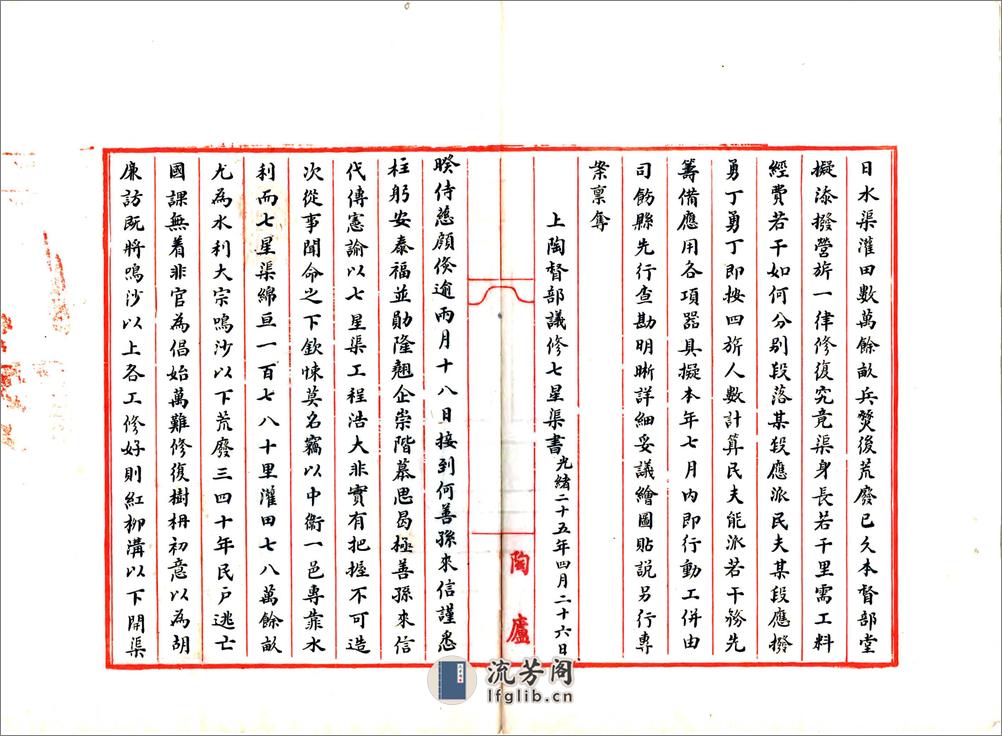 日水渠灌田數萬餘畝兵燹後荒廢已久本督部堂
擬添撥營旂一律修復究竟渠身長若干里需工料
經費若干如何分別段落某段應派民夫某段應撥
勇丁勇丁即按四旂人數計算民夫能派若干務先
籌備應用各項器具擬本年七月內即行動工併由
司飭縣先行查勘明晰詳細妥議繪圖貼說另行專
案稟奪
上陶督部議修七星渠書光緒二十五年四月二十六日
陶廬
暌侍慈顏倏逾兩月十八日接到何善孫來信謹悉
柱躬安泰福並勛隆翹企崇階慕思曷極善孫來信
代傳憲諭以七星渠工程浩大非實有把握不可造
次從事聞命之下欽悚莫名竊以中衛一邑專靠水
利而七星渠綿亘一百七八十里灌田七八萬餘畝
尤為水利大宗鳴沙以下荒廢三四十年民戶逃亡
國課無着非官為倡始萬難修復樹枏初意以為胡
廉訪既將鳴沙以上各工修好則紅柳溝以下開渠
流芳阁
lfglib.cn